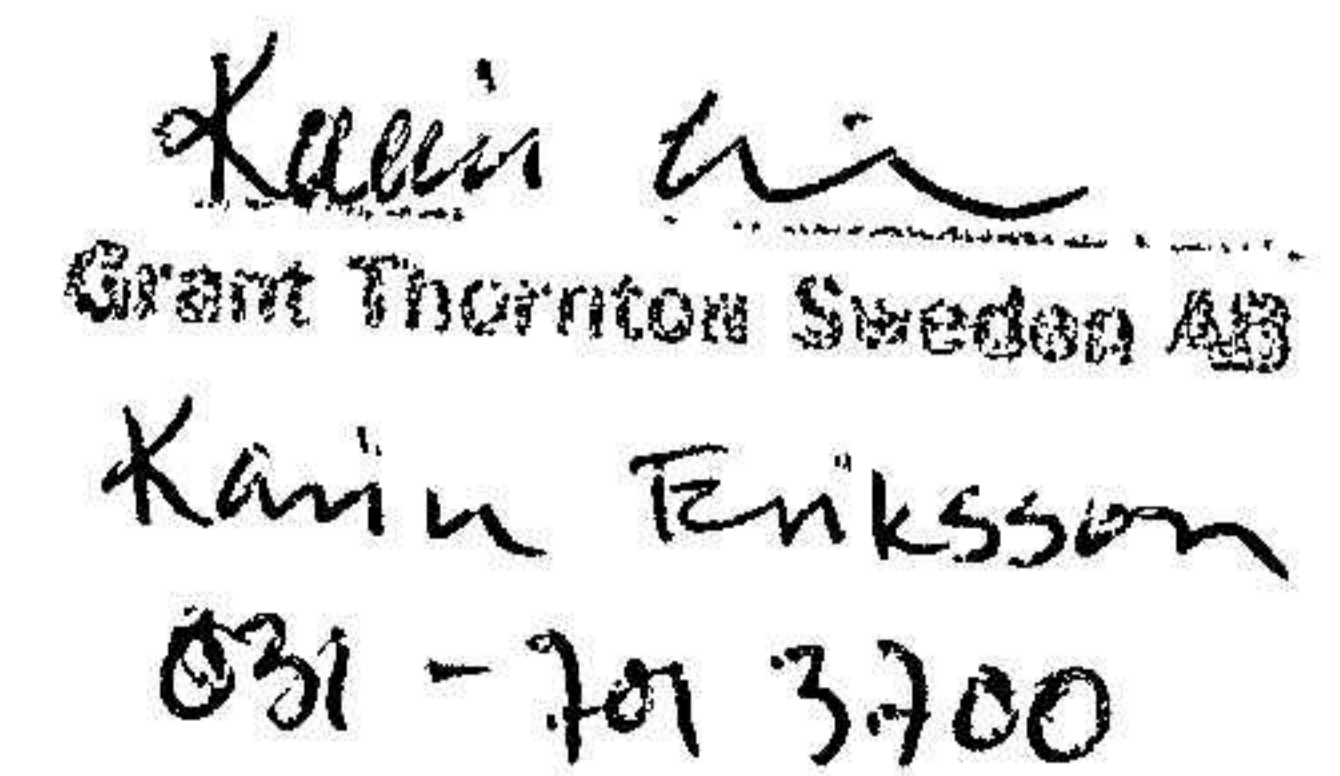 Karin
Grant Thornton Sweden AB
Karin Eriksson
031-701 3700